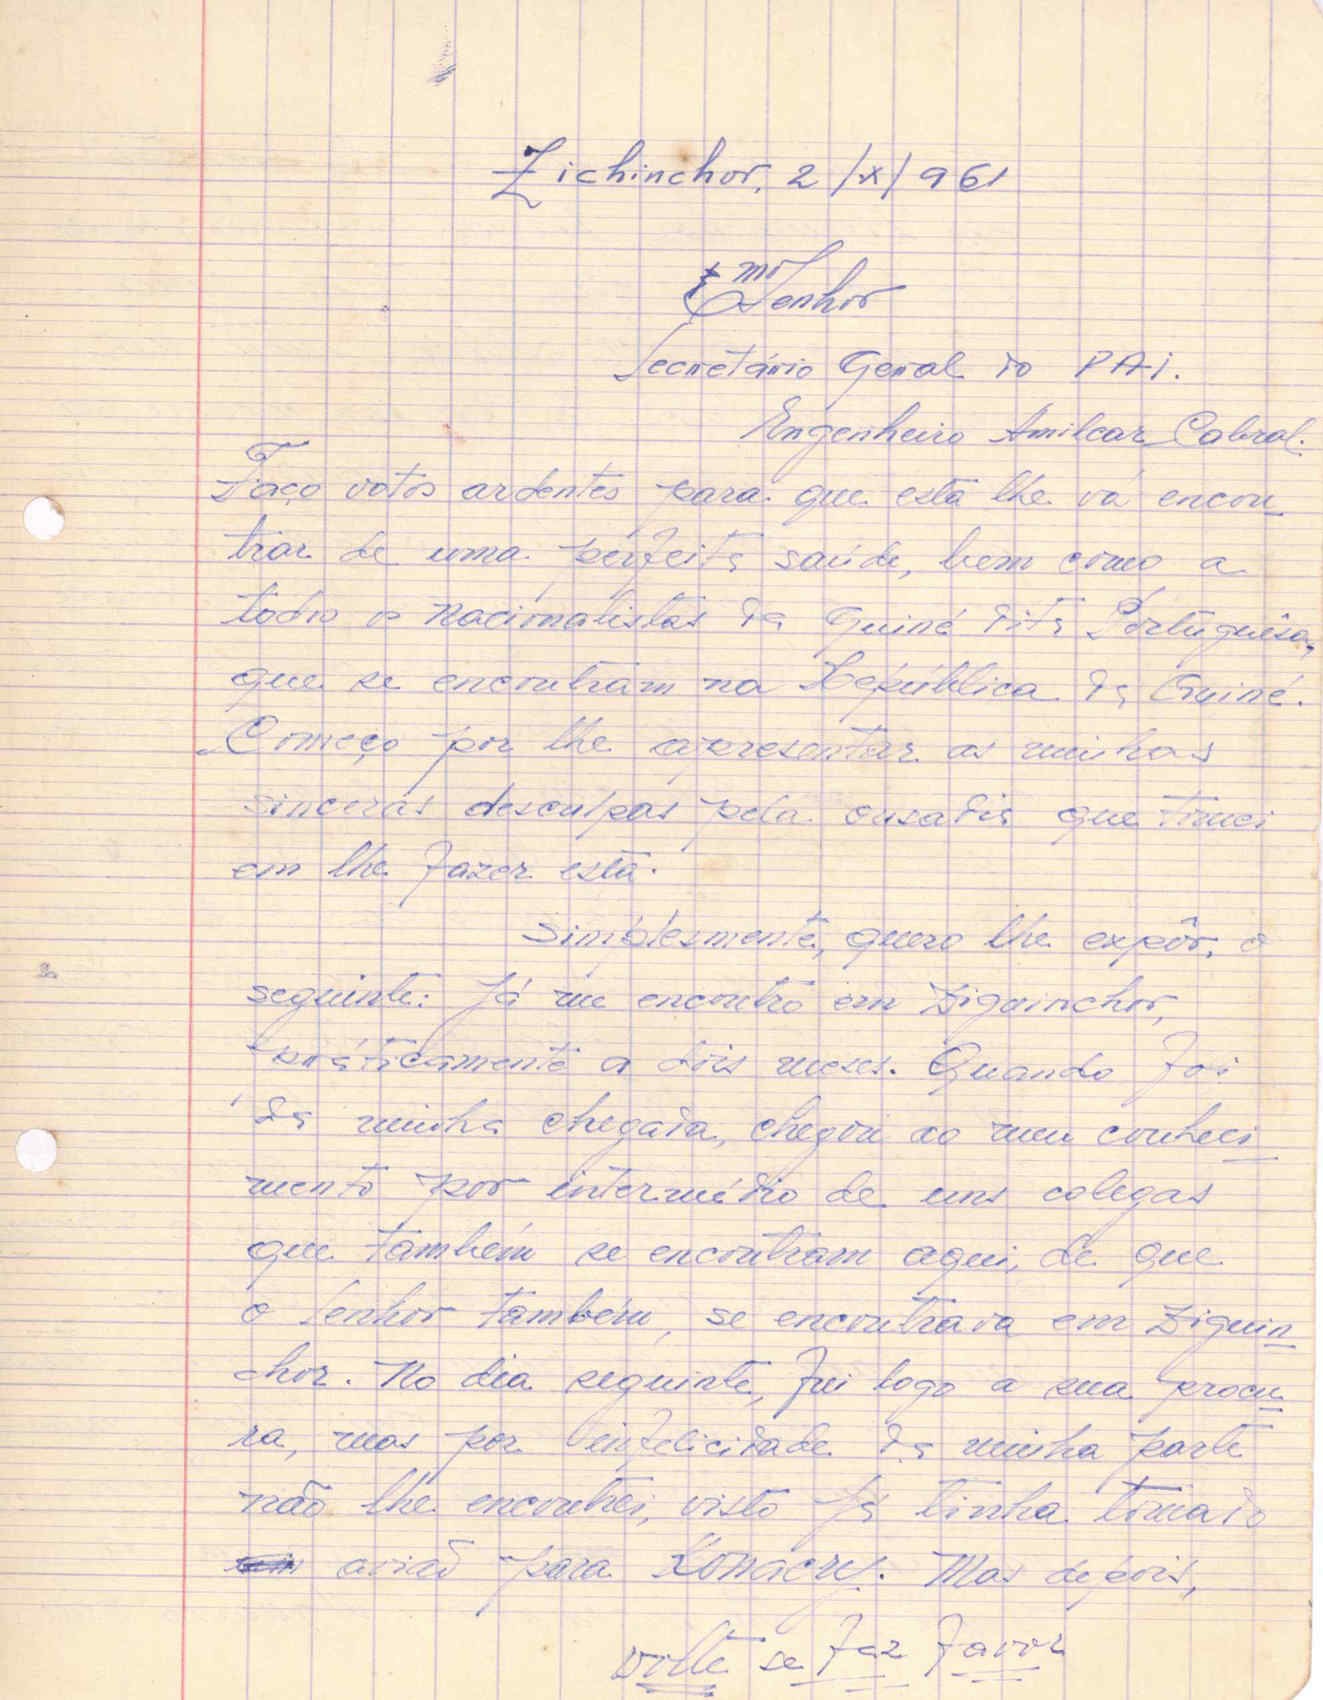 Zichinchor, 2/X/961
Exmo Senhor
Secretário Geral do PAI.
Engenheiro Amilcar Cabral.
Faço votos ardentes para que esta lhe vá encon
trar de uma perfeita saúde, bem como a
todos os nacionalistas da Guiné dita Portuguêsa,
que se encontram na República da Guiné.
Começo por lhe apresentar as minhas
sinceras desculpas pela ousadia que tomei
em lhe fazer esta.
Simplesmente, quero lhe expôr, o
seguinte: Já me encontro em Ziguinchor,
práticamente a dois meses. Quando foi
da minha chegada, chegou ao meu conheci
mento por intermédio de uns colegas
que também se encontram aqui, de que
o Senhor também, se encontrava em Ziguin
chor. No dia seguinte, fui logo a sua procu
ra, mas por infelicidade da minha parte
não lhe encontrei, visto já tinha tomado
avião para Konacry. Mas depois,
Volte se Faz Favor